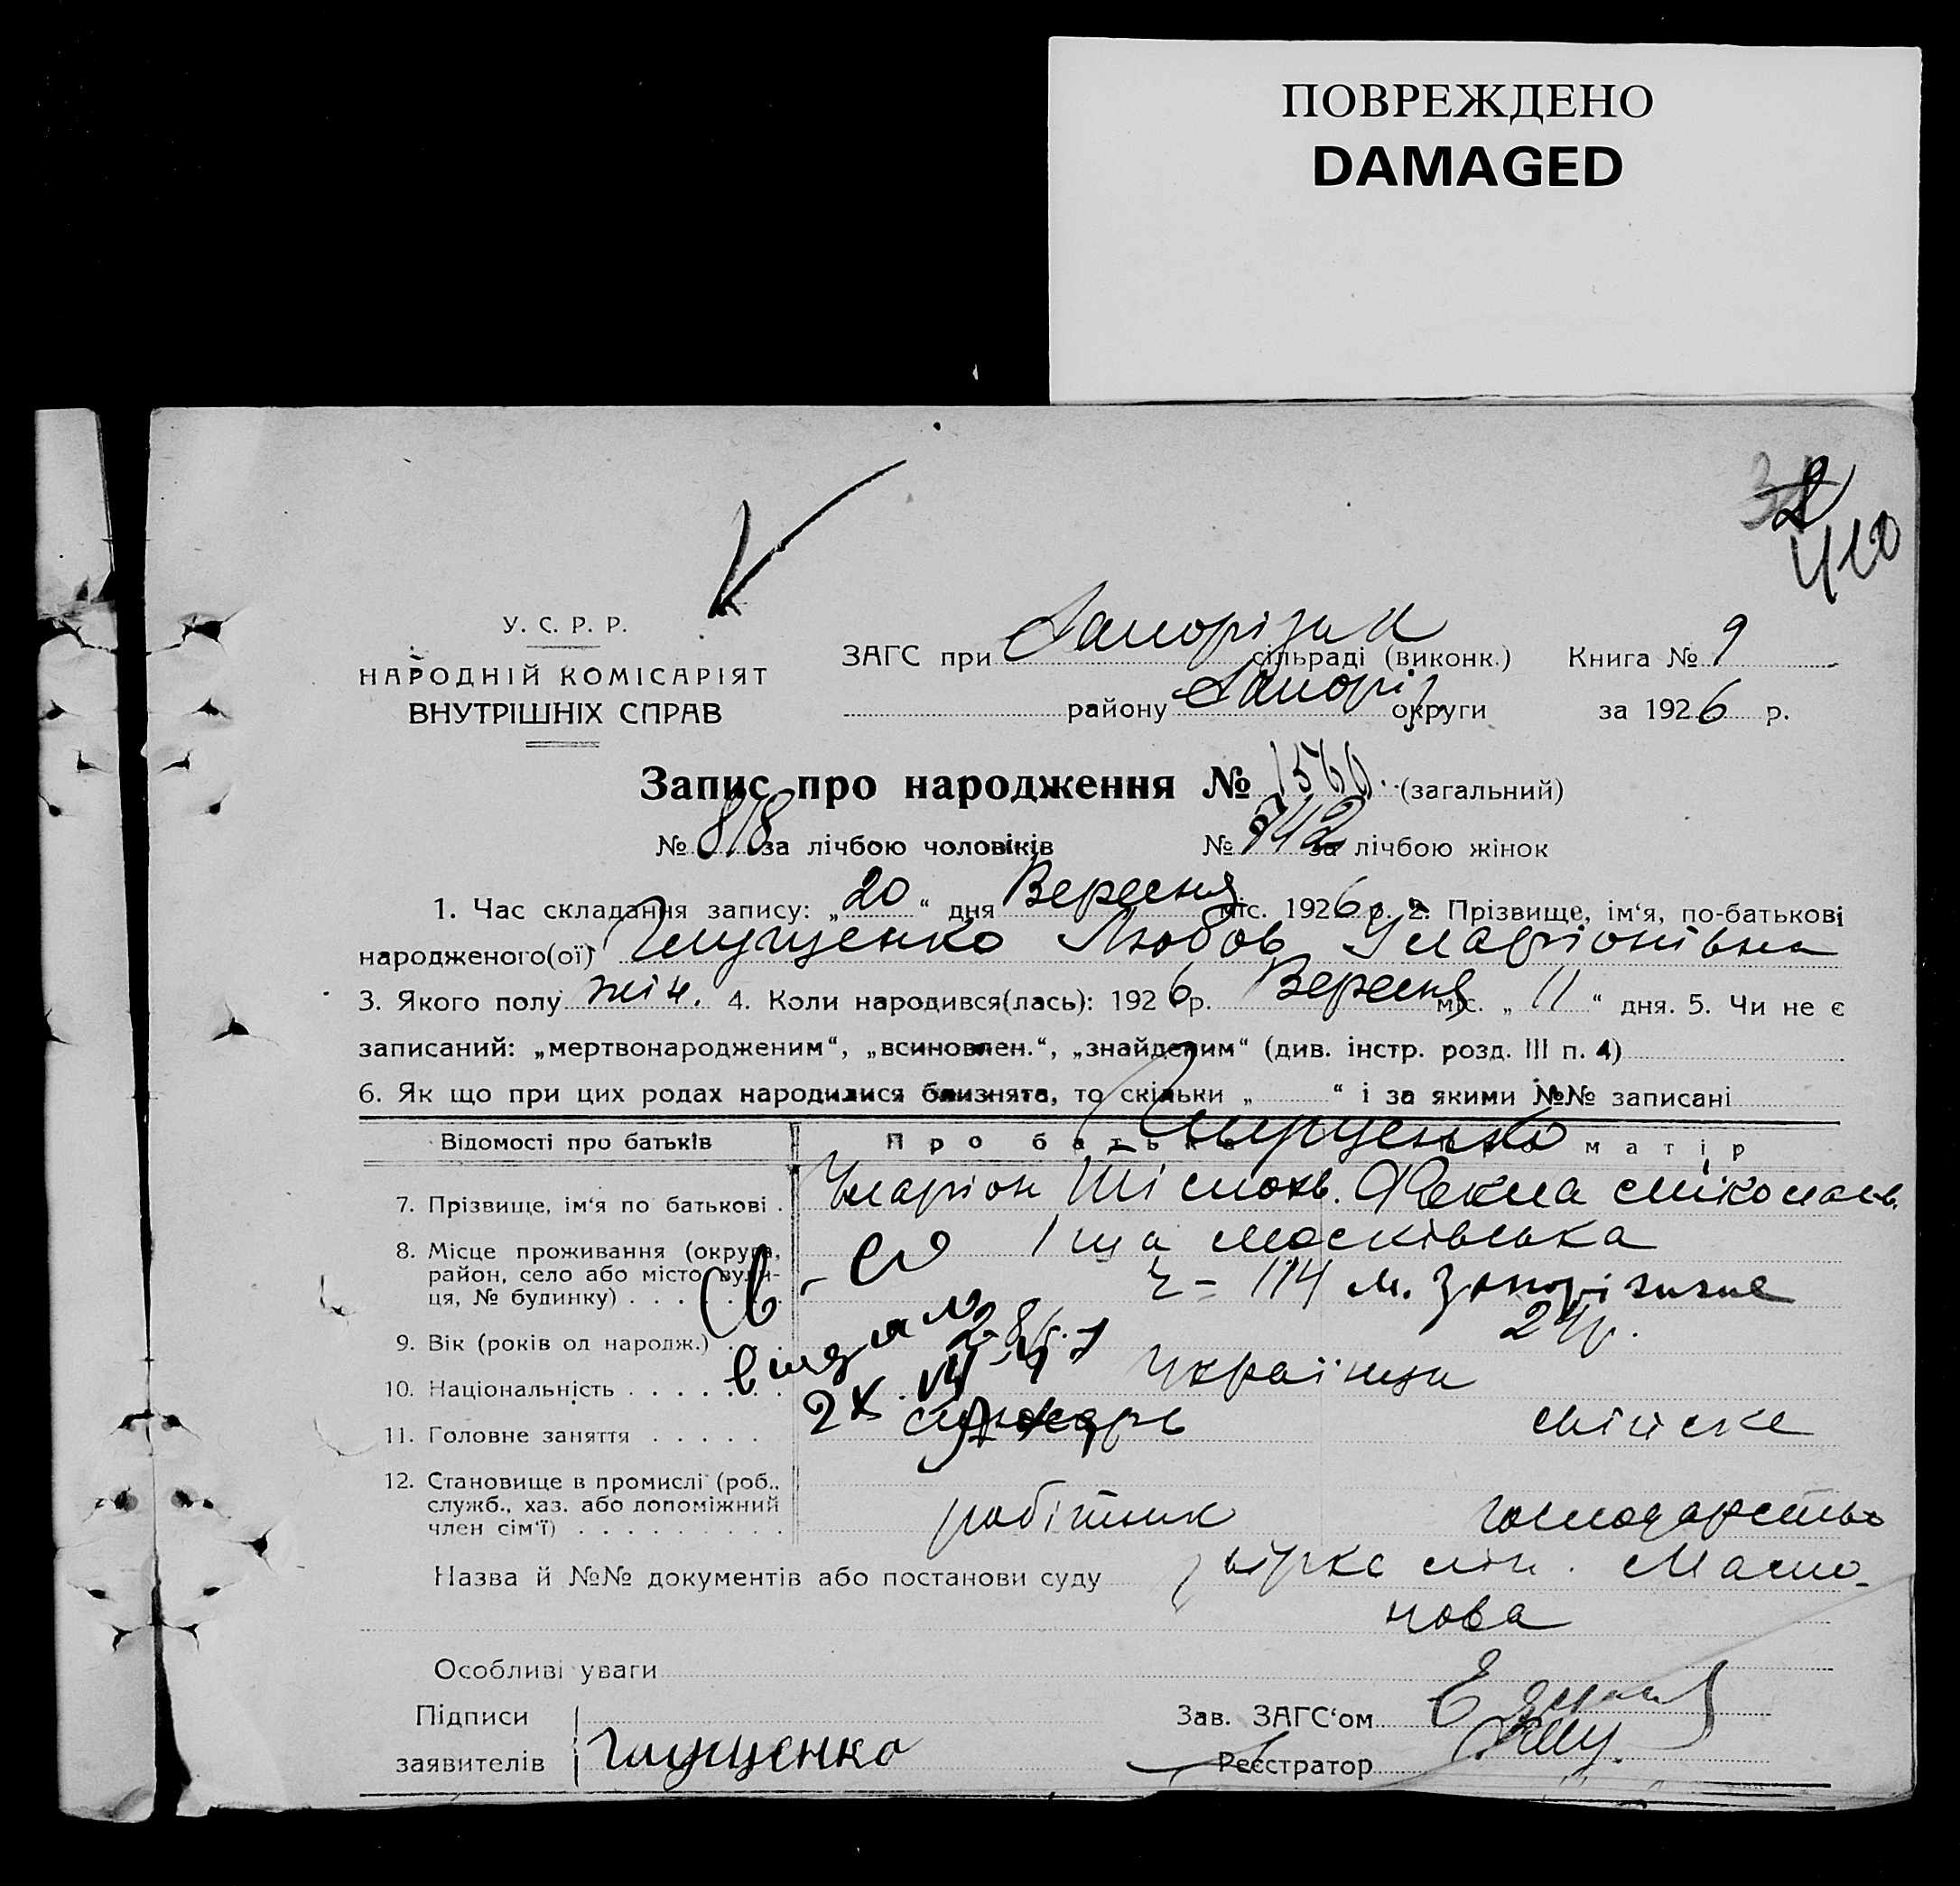 ПОВРЕЖДЕНО
DAMAGED
410
У. С. Р. Р.
НАРОДНІЙ КОМІСАРІЯТ
ВНУТРІШНІХ СПРАВ
ЗАГС при сільраді (виконк.) Книга № 9
району Запоріз. округи за 1926 р.
Запис про народження № 1560 (загальний)
№ 818 за лічбою чоловіків № 742 за лічбою жінок
1. Час складання запису: „20“ дня Вересня міс. 1926 р. 2. Прізвище, ім‘я, по-батькові
народженого(ої) Глущенко Любов Іларіонівна
3. Якого полу жін. 4. Коли народився(лась): 1926 р. Вересня міс. „11“ дня. 5. Чи не є
записаний: „мертвонародженим“, „всиновлен.“, „знайденим“ (див. інстр. розд. III п. 4)
6. Як що при цих родах народилися близнята, то скільки „ “ і за якими №№ записані
Відомості про батьків Про батька матір
Глущенко
7. Прізвище, ім‘я по батькові . Іларіон Текла Миколаєв.
8. Місце проживання (округа, район, село або місто, вули-ця, № будинку) . . . . . . Московська
114 м. Запоріжжя
9. Вік (років од народж.) . . . 24 р.
10. Національність . . . . . . . українци
11. Головне заняття . . . . .
12. Становище в промислі (роб., служб., хаз. або допоміжний член сім‘ї) . . . . . . . . . робітник господарство
Назва й №№ документів або постанови суду
Особливі уваги
Підписи
заявителів Глущенко
Зав. ЗАГС‘ом
Реєстратор